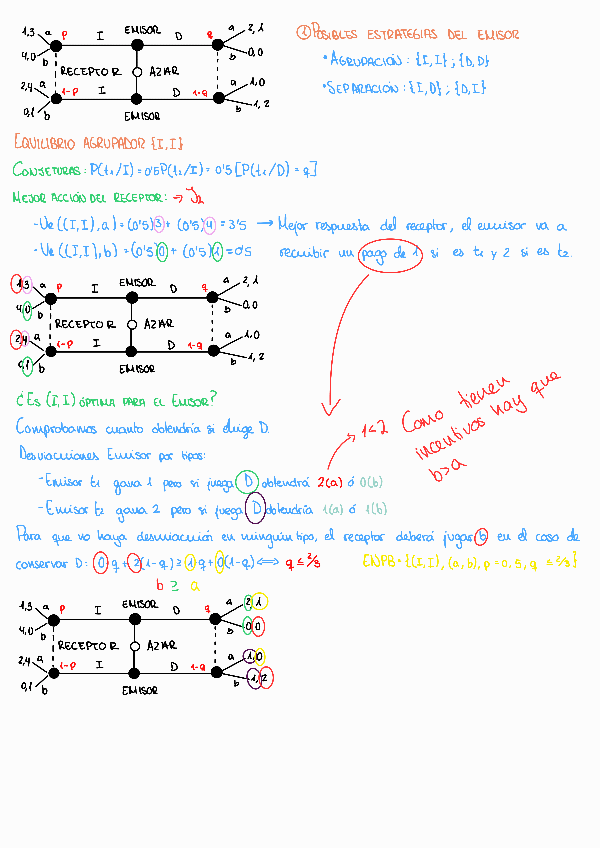 1,3 a P I EMISOR D q a 2,1
4,0 b b 0,0
RECEPTOR AZAR
2,4 a 1-P I D 1-q a 1,0
0,1 b EMISOR b 1,2
① POSIBLES ESTRATEGIAS DEL EMISOR
• AGRUPACIÓN: {I,I} ; {D,D}
• SEPARACIÓN: {I,D} ; {D,I}
EQUILIBRIO AGRUPADOR {I,I}
CONJETURAS: P(t₁/I) = 0'5 P(t₂/I) = 0'5 [P(t₁/D) = q]
MEJOR ACCIÓN DEL RECEPTOR: → J₂
- Ue ((I,I),a) = (0'5)3 + (0'5)4 = 3'5 → Mejor respuesta del receptor, el emisor va a
- Ue ((I,I),b) = (0'5)0 + (0'5)1 = 0'5 recibir un pago de 1 si es t₁ y 2 si es t₂.
1,3 a P I EMISOR D q a 2,1
4,0 b b 0,0
RECEPTOR AZAR
2,4 a 1-P I D 1-q a 1,0
0,1 b EMISOR b 1,2
¿ES (I,I) ÓPTIMA PARA EL EMISOR?
Comprobamos cuanto obtendría si elige D.
1<2 Como tienen
incentivos hay que
b>a
Desviaciones Emisor por tipos:
- Emisor t₁ gana 1 pero si juega D obtendrá 2(a) ó 0(b)
- Emisor t₂ gana 2 pero si juega D obtendría 1(a) ó 1(b)
Para que no haya desviación en ningún tipo, el receptor deberá jugar b en el caso de
conservar D: 0·q + 2(1-q) ≥ 1·q + 0(1-q) ⟺ q ≤ 2/3 ENPB = {(I,I), (a,b), p=0.5, q ≤ 2/3}
b ≥ a
1,3 a P I EMISOR D q a 2,1
4,0 b b 0,0
RECEPTOR AZAR
2,4 a 1-P I D 1-q a 1,0
0,1 b EMISOR b 1,2